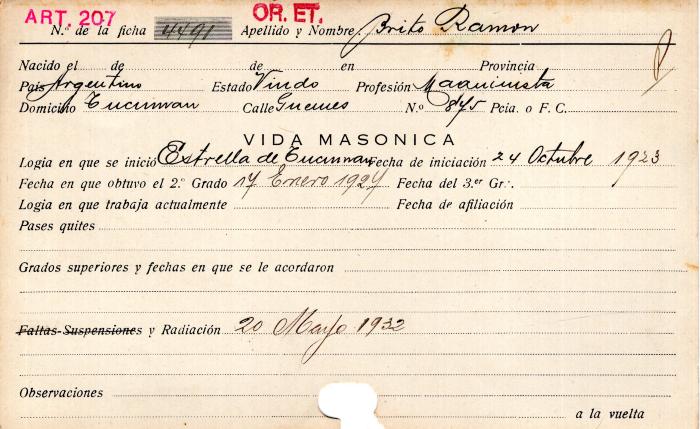 ART. 207 OR. ET.
N.º de la ficha 4491 Apellido y Nombre. Brito Ramon
Nacido el de de en Provincia
País Argentino Estado Viudo Profesión Maquinista
Domicilio Tucuman Calle Guemes N.º 845 Pcia. o F. C.
VIDA MASONICA
Logia en que se inició Estrella de Tucuman Fecha de iniciación 24 Octubre 1923
Fecha en que obtuvo el 2.º Grado 17 Enero 1927 Fecha del 3.er Gr∴.
Logia en que trabaja actualmente Fecha de afiliación
Pases quites
Grados superiores y fechas en que se le acordaron
Faltas-Suspensiones y Radiación 20 Mayo 1932
Observaciones
a la vuelta